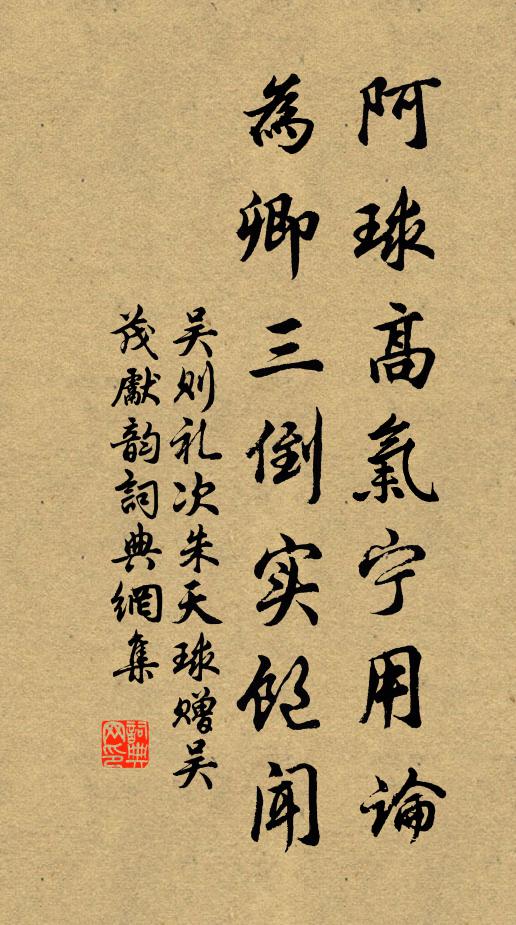 阿球高氣宁用論
為卿三倒实饱闻
吴则礼次朱天球赠吴
茂獻韵詞典網集
詞典网印